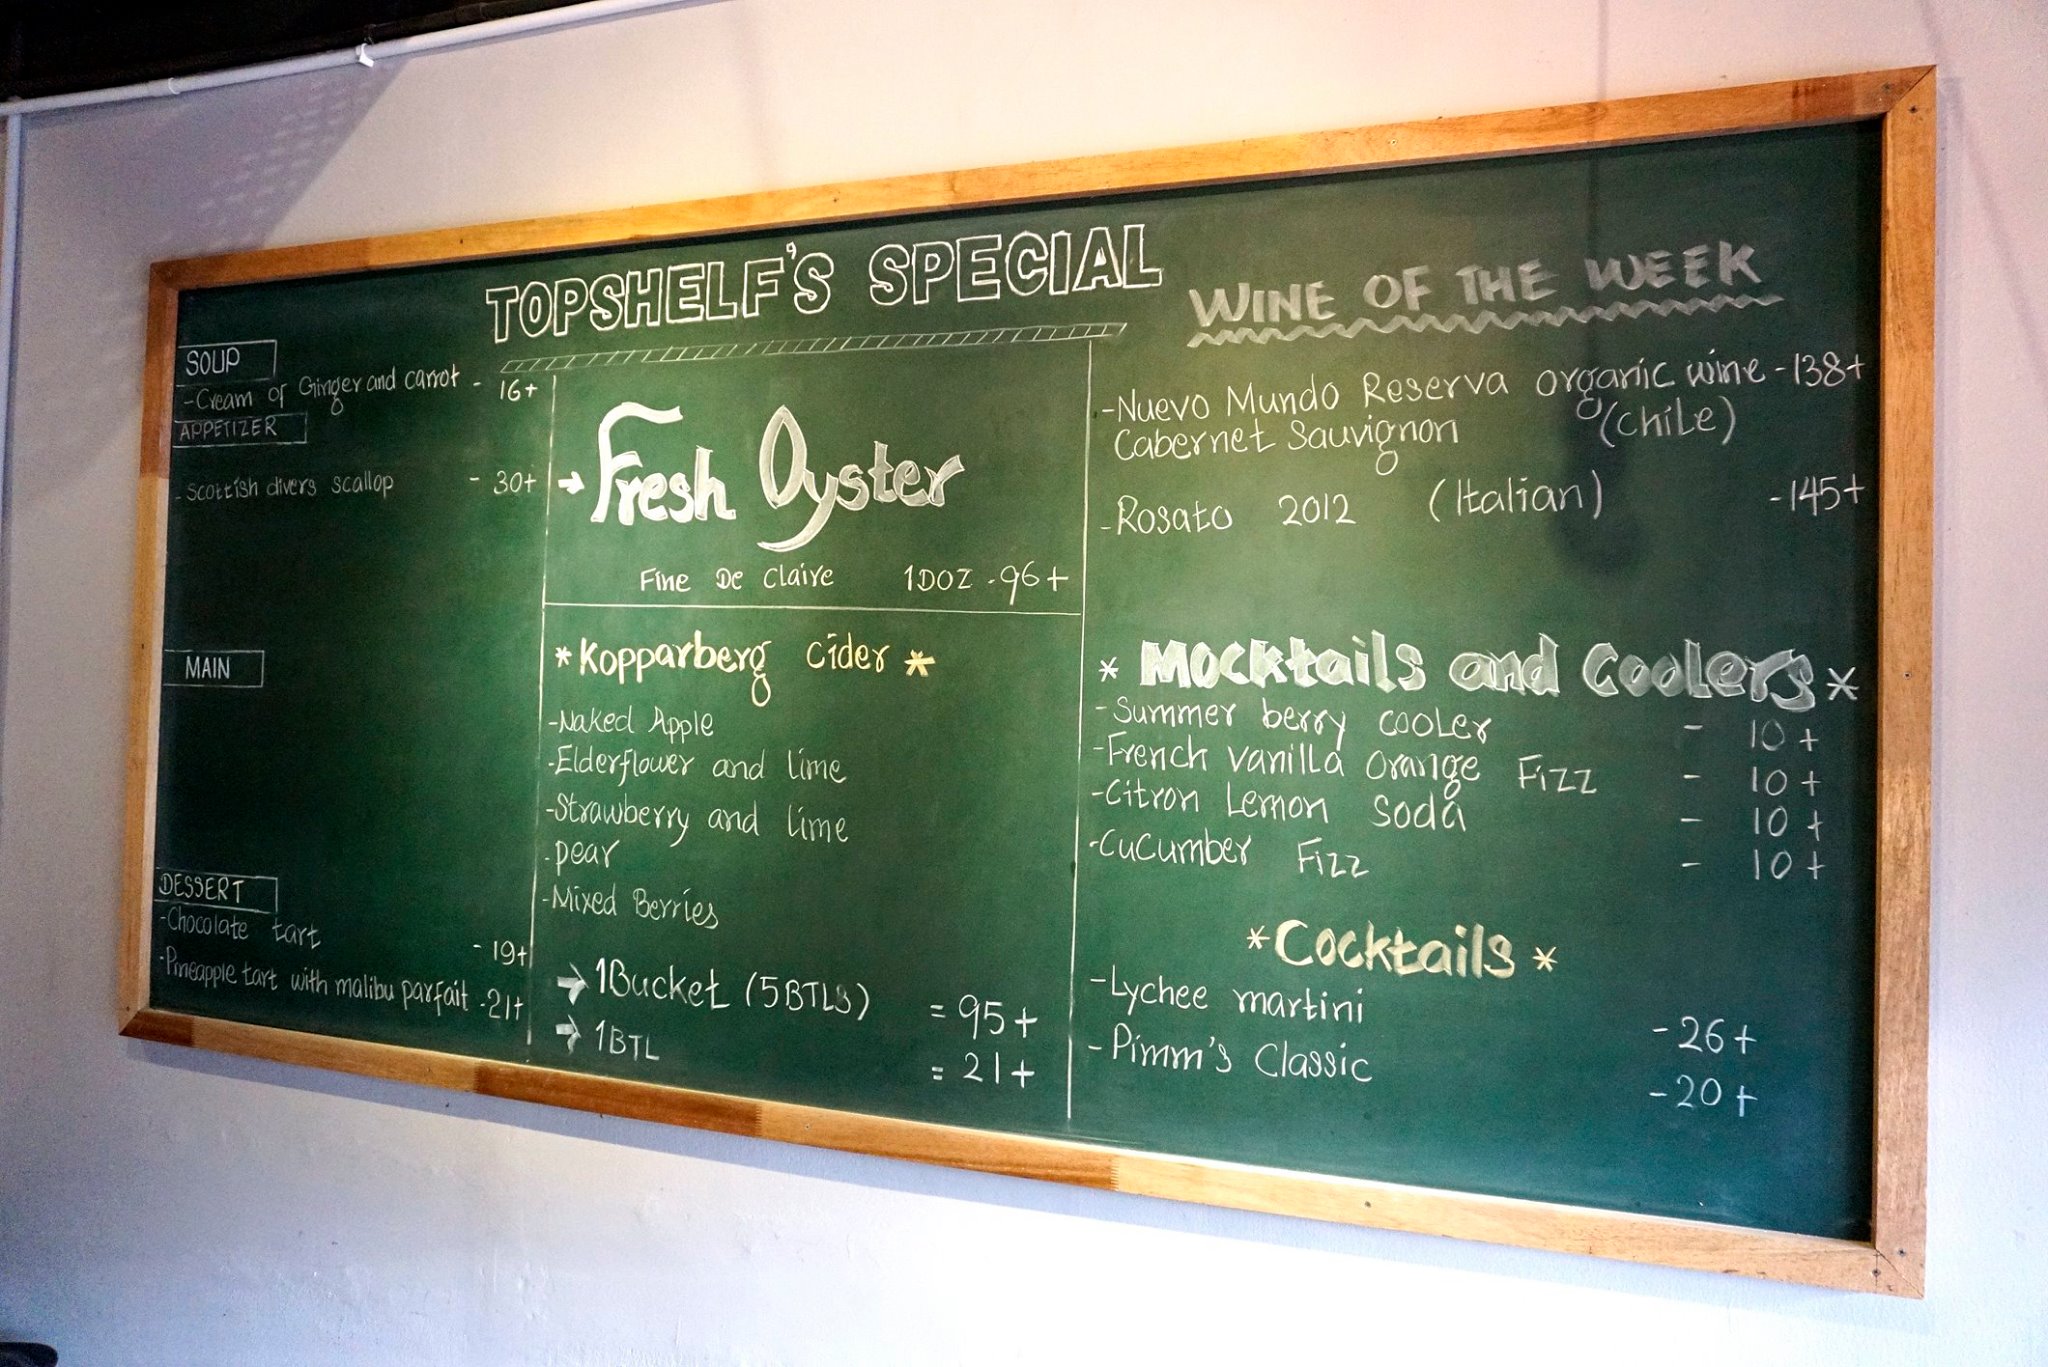 TOPSHELF'S SPECIAL
SOUP
-Cream of Ginger and carrot - 16+
APPETIZER
-Scottish divers scallop - 30+
MAIN
DESSERT
-Chocolate tart - 19+
-Pineapple tart with malibu parfait -21+
→ Fresh Oyster
Fine De Claire 1DOZ -96+
*Kopparberg Cider*
-Naked Apple
-Elderflower and lime
-Strawberry and lime
-pear
-Mixed Berries
→ 1Bucket (5BTLS) = 95+
→ 1BTL = 21+
WINE OF THE WEEK
-Nuevo Mundo Reserva organic wine -138+
Cabernet Sauvignon (Chile)
-Rosato 2012 (Italian) -145+
* Mocktails and Coolers*
-Summer berry cooler - 10+
-French vanilla orange Fizz - 10+
-Citron Lemon Soda - 10+
-Cucumber Fizz - 10+
*Cocktails*
-Lychee martini -26+
-Pimm's Classic -20+